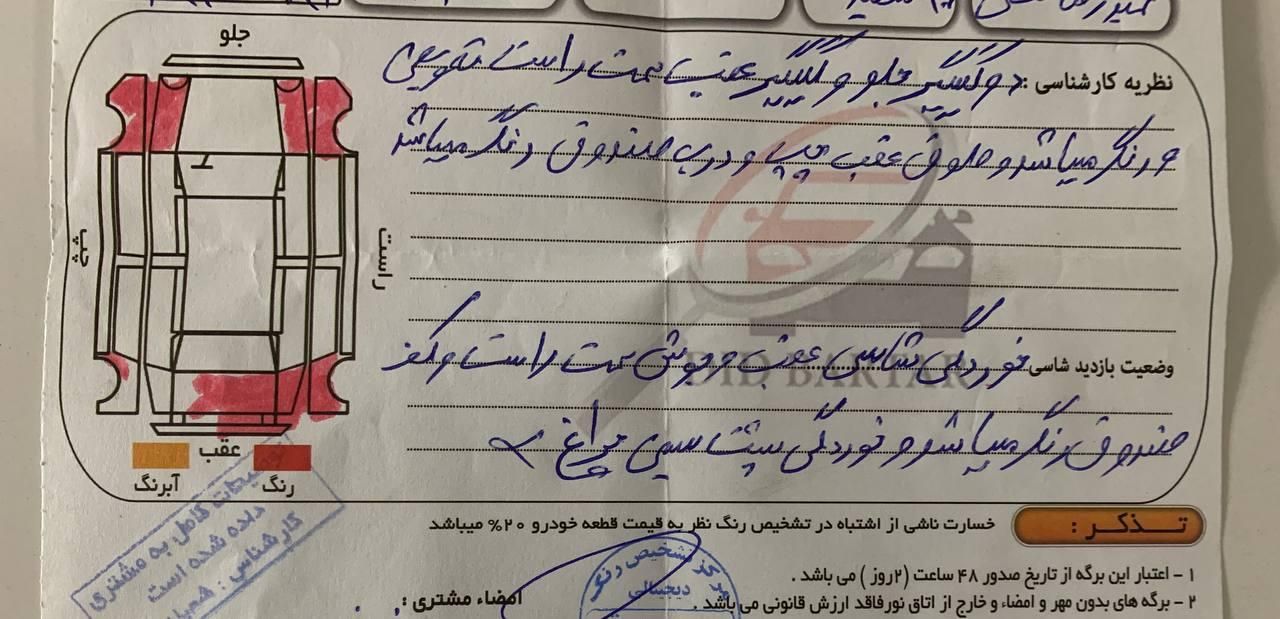 جلو
نظریه کارشناسی : دو گلگیر جلو و گلگیر عقب سمت راست تعویض
و رنگ میباشد و ستون عقب چپ و درب صندوق رنگ میباشد
چپ
راست
وضعیت بازدید شاسی خوردگی شاسی عقب سمت راست و کف
صندوق رنگ میباشد و خوردگی پشت سینی چراغ
DID BARTAR
عقب
آبرنگ
رنگ
توضیحات کامل به مشتری
داده شده است
کارشناس :
تذکر :
خسارت ناشی از اشتباه در تشخیص رنگ نظر به قیمت قطعه خودرو ۲۰% میباشد
۱ - اعتبار این برگه از تاریخ صدور ۴۸ ساعت (۲روز ) می باشد .
۲ - برگه های بدون مهر و امضاء و خارج از اتاق نورفاقد ارزش قانونی می باشد .
مرکز تشخیص رنگ
دیجیتالی
امضاء مشتری :